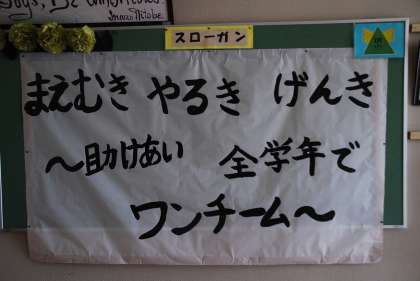 Boys, be ambitious
Inazo Nitobe
スローガン
まえむき やるき げんき
～助けあい 全学年で
ワンチーム～